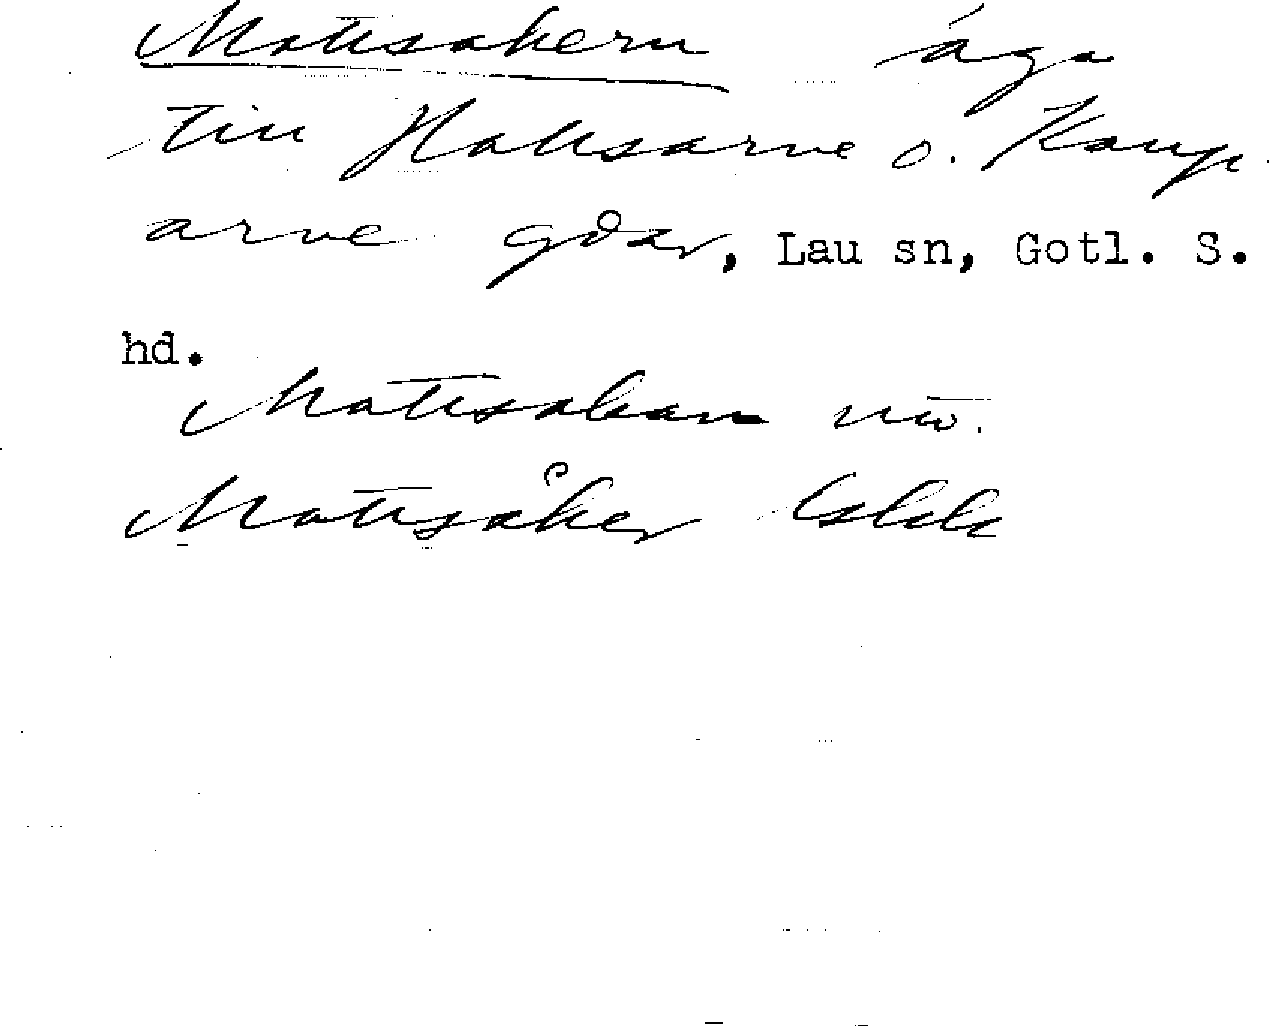 Mattsåkern äga
till Hallsarve o. Kaup
arve gdar, Lau sn, Gotl. S.
hd.
Mattsakan
Mattsåker